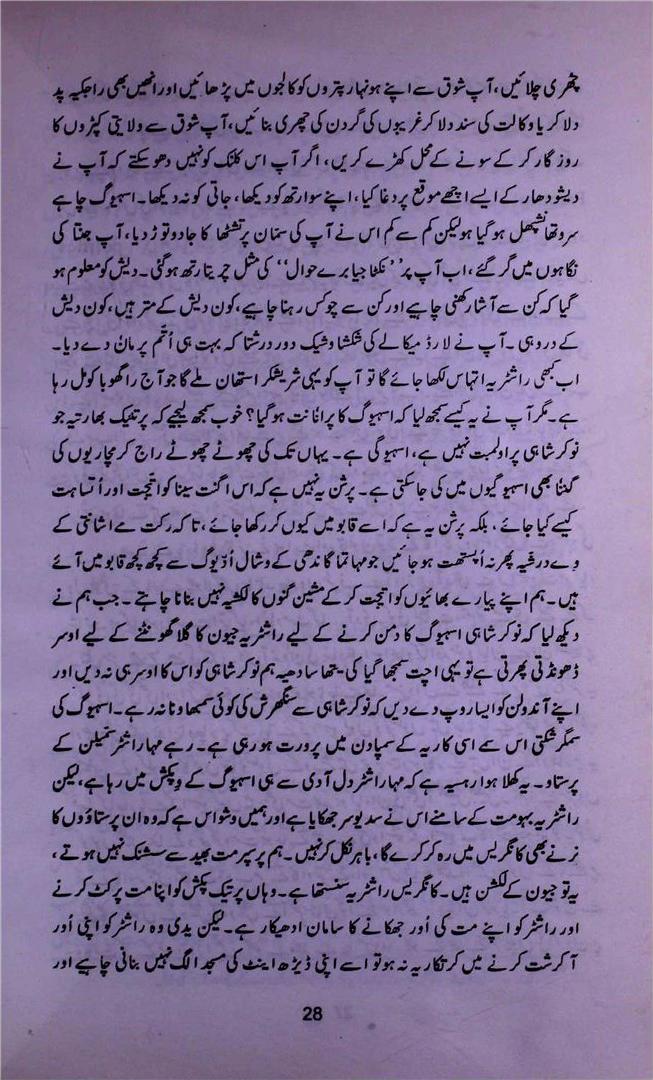 چھری چلائیں، آپ شوق سے اپنے ہونہار پتروں کو کالجوں میں پڑھائیں اور انھیں بھی راجکیہ پد
دلا کر یا وکالت کی سند دلا کر غریبوں کی گردن کی چھری بنائیں، آپ شوق سے ولایتی کپڑوں کا
روزگار کر کے سونے کے محل کھڑے کریں، اگر آپ اس کلنک کو نہیں دھو سکتے کہ آپ نے
دیشودھار کے ایسے اچھے موقع پر دغا کیا، اپنے سوارتھ کو دیکھا، جاتی کو نہ دیکھا۔ اسہیوگ چاہے
سروتھا نشپھل ہو گیا ہو لیکن کم سے کم اس نے آپ کی سمّان پرتشٹھا کا جادو توڑ دیا، آپ جنتا کی
نگاہوں میں گر گئے، اب آپ پر ”نکٹا جیا برے حوال“ کی مثل چریتارتھ ہو گئی۔ دیش کو معلوم ہو
گیا کہ کن سے آشا رکھنی چاہیے اور کن سے چوکس رہنا چاہیے، کون دیش کے متر ہیں، کون دیش
کے دروہی۔ آپ نے لارڈ میکالے کی شکشا وشیک دور درشتا کہ بہت ہی اُتّم پرمان دے دیا۔
اب کبھی راشٹریہ اتہاس لکھا جائے گا تو آپ کو یہی شریشکر استھان ملے گا جو آج راگھوبا کو مل رہا
ہے۔ مگر آپ نے یہ کیسے سمجھ لیا کہ اسہیوگ کا پرانانت ہو گیا؟ خوب سمجھ لیجیے کہ پرتیک بھارتیہ جو
نوکر شاہی پر اولمبت نہیں ہے، اسہیوگی ہے۔ یہاں تک کی چھوٹے چھوٹے راج کرمچاریوں کی
گنتا بھی اسہیوگیوں میں کی جا سکتی ہے۔ پرشن یہ نہیں ہے کہ اس اگنت سینا کو اتیجت اور اُتساہت
کیسے کیا جائے، بلکہ پرشن یہ ہے کہ اسے قابو میں کیوں کر رکھا جائے، تاکہ رکت مے اشانتی کے
وے درشیہ پھر نہ اُپستھت ہو جائیں جو مہاتما گاندھی کے وشال اُدّیوگ سے کچھ کچھ قابو میں آئے
ہیں۔ ہم اپنے پیارے بھائیوں کو اتیجت کر کے مشین گنوں کا لکشیہ نہیں بنانا چاہتے۔ جب ہم نے
دیکھ لیا کہ نوکر شاہی اسہیوگ کا دمن کرنے کے لیے راشٹریہ جیون کا گلا گھونٹنے کے لیے اوسر
ڈھونڈتی پھرتی ہے تو یہی اچت سمجھا گیا کی یتھا سادھیہ ہم نوکر شاہی کو اس کا اوسر ہی نہ دیں اور
اپنے آندولن کو ایسا روپ دے دیں کہ نوکر شاہی سے سنگھرش کی کوئی سمبھاونا نہ رہے۔ اسہیوگ کی
سمگر شکتی اس سمے اسی کاریہ کے سمپادن میں پرورت ہو رہی ہے۔ رہے مہاراشٹر سمّیلن کے
پرستاو۔ یہ کھلا ہوا رہسیہ ہے کہ مہاراشٹر دل آدی سے ہی اسہیوگ کے وپکش میں رہا ہے، لیکن
راشٹریہ بہومت کے سامنے اس نے سدیو سر جھکایا ہے اور ہمیں وشواس ہے کہ وہ ان پرستاؤوں کا
نرنے بھی کانگریس میں رہ کر کرے گا، باہر نکل کر نہیں۔ ہم پرسپر مت بھید سے سشنک نہیں ہوتے،
یہ تو جیون کے لکشن ہیں۔ کانگریس راشٹریہ سنستھا ہے۔ وہاں پرتیک پکش کو اپنا مت پرکٹ کرنے
اور راشٹر کو اپنے مت کی اُور جھکانے کا سامان ادھیکار ہے۔ لیکن یدی وہ راشٹر کو اپنی اُور
آکرشت کرنے میں کرتکاریہ نہ ہو تو اسے اپنی ڈیڑھ اینٹ کی مسجد الگ نہیں بنانی چاہیے اور
28